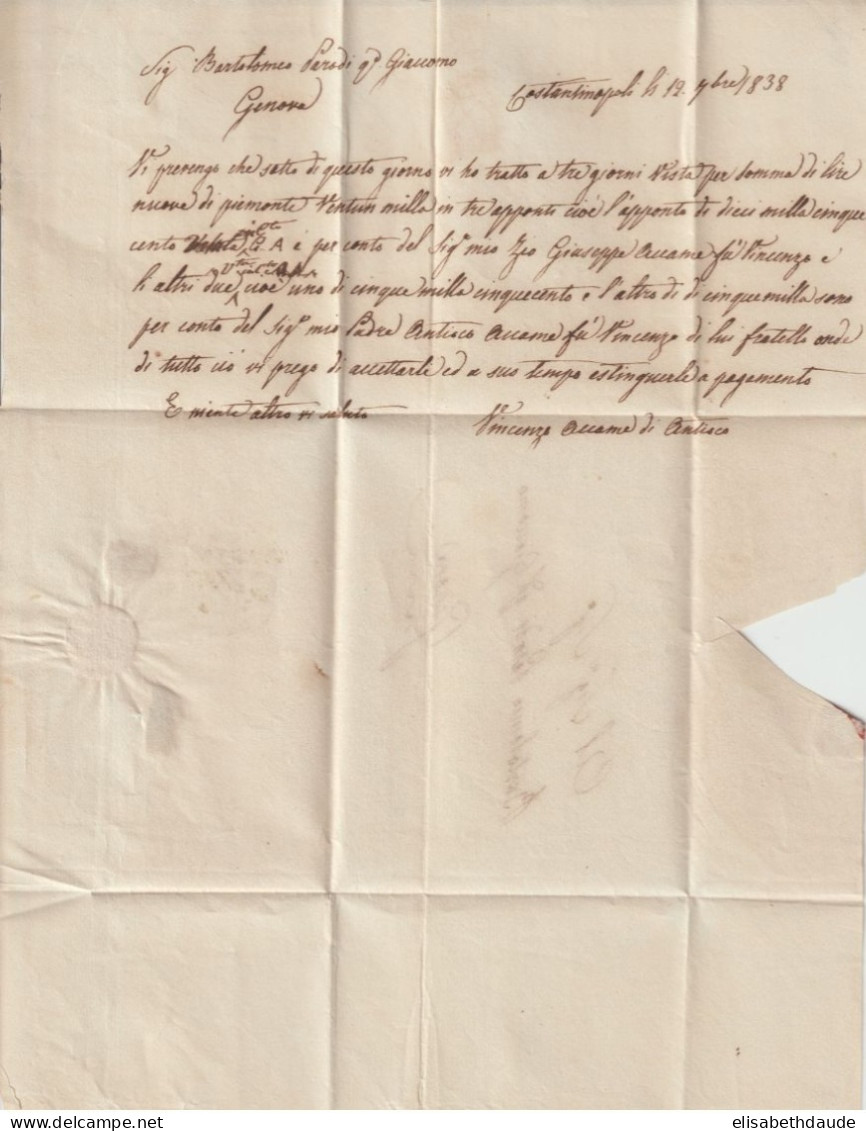 Sig.r Bartolomeo Parodi q.m Giacomo
Genova
Costantinopoli li 12. 7bre 1838
Vi prevengo che sotto di questo giorno vi ho tratto a tre giorni Vista per Somma di lire
nuove di piemonte Ventun milla in tre apponti cioé l'apponto di dieci milla cinque
cento A é per conto del Sig.r mio Zio Giuseppe Accame fú Vincenzo é
li altri due cioé uno di cinque milla cinquecento é l'altro di di cinque milla sono
per conto del Sig.r mio Padre Antioco Accame fú Vincenzo di lui fratello onde
di tutto ció vi prego di accettarle ed a suo tempo estinguerle a pagamento
E niente altro vi saluto
Vincenzo Accame di Antioco
elisabethdaude